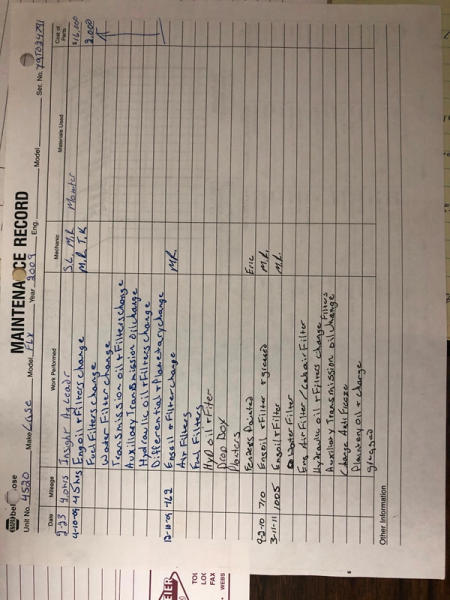 MAINTENANCE RECORD
Unit No. 4520 Make Case Model FLX Year 2009 Eng. Model Ser. No.
Date Mileage Work Performed Mechanic Materials Used Cost of Parts
Insight Ag Leader S.L. M.R. Monitor $16,000
4-10-09 45hrs Eng oil + Filters change M.R. T.K. 2,000
Fuel Filters change
Water Filter change
Transmission oil + Filters change
Auxillary Transmission oil change
Hydraulic oil + Filters change
Differential + Planetary change
12-10-09 462 Eng oil + Filter change M.R.
Air Filters
Fuel Filters
Hyd oil Filter
Drop Box
Fenders Painted Eric
9-2-10 710 Eng oil + Filter + greased M.R.
3-11-11 1005 Eng oil + Filter M.R.
Water Filter
Eng Air Filter / Cab air Filter
Hydraulic oil + Filters change
Auxillary Transmission oil change Filters
Change Anti Freeze
Planitary oil + change
greased
Other Information
TOL
LOC
FAX
WEBS